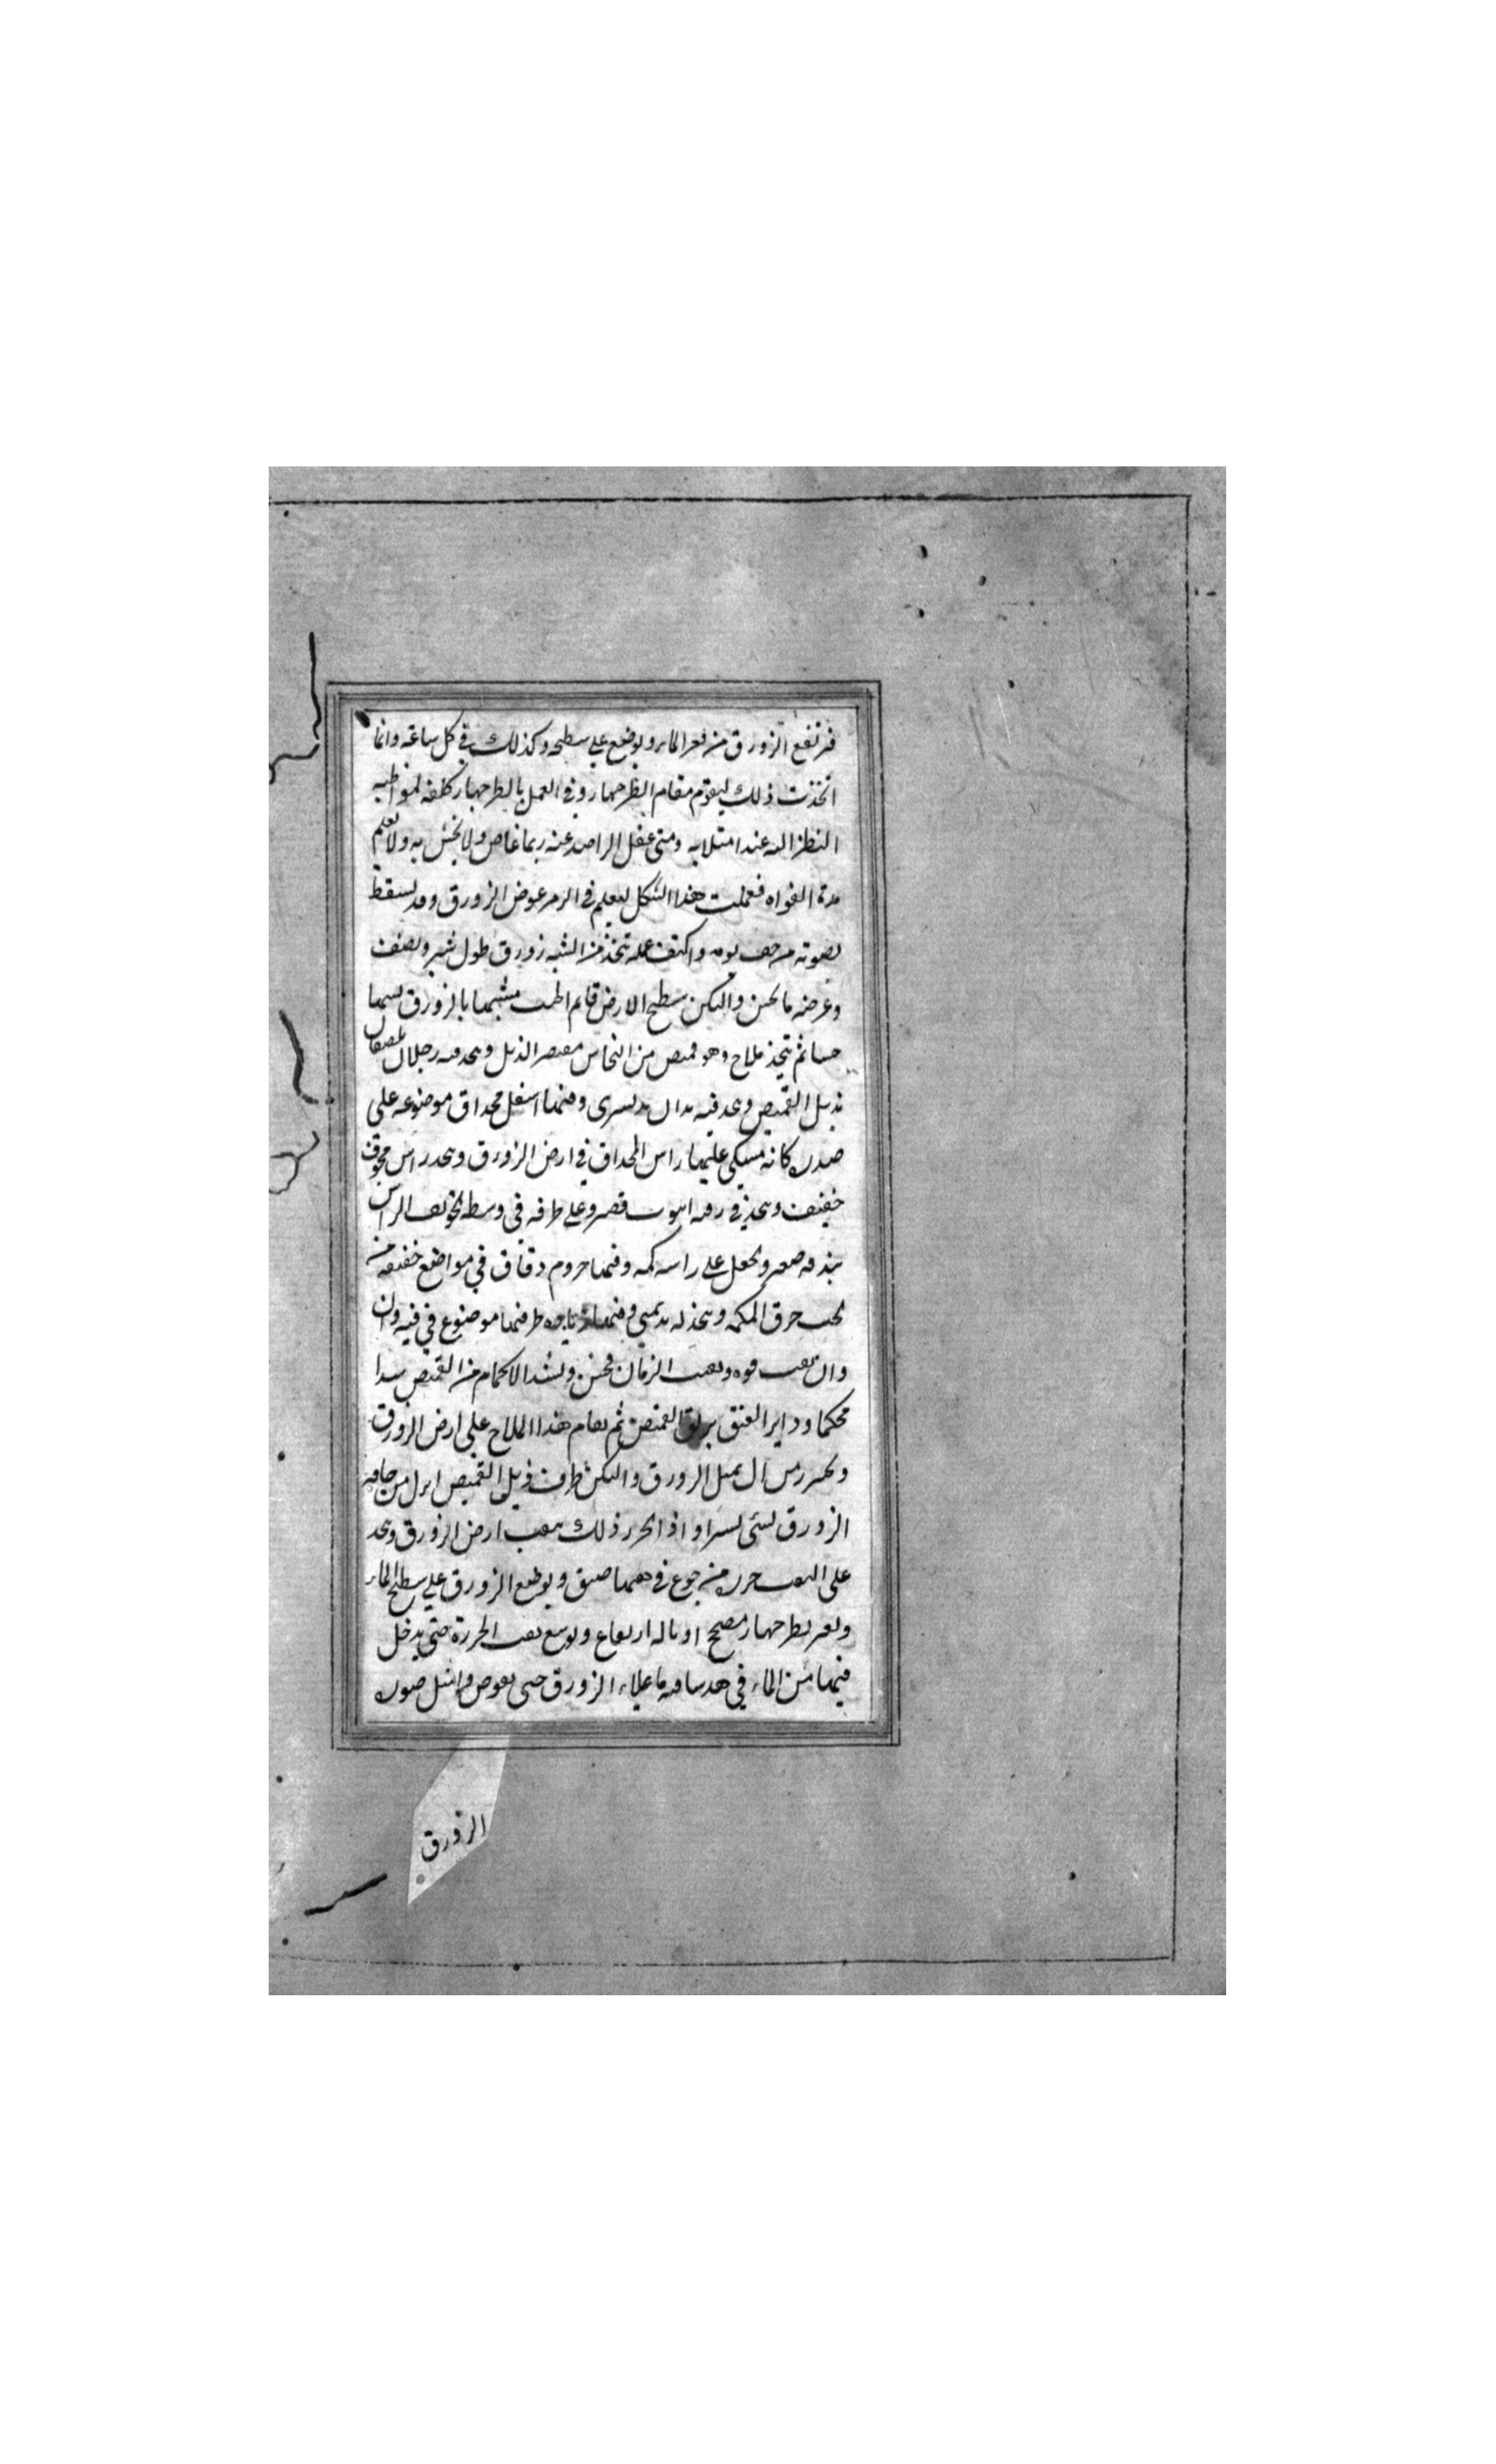 فيرتفع الزورق من قعر الماء ويوضع على سطحه وكذلك في كل ساعه وانما
اتخذت ذلك ليقوم مقام الطرجهار وفي العمل بالطرجهار كلفه لمواظبه
النظر اليه عند امتلايه ومتى غفل الراصد عنه ربما غاص ولا يحس به ولا يعلم
مدة فعملت هذا الشكل ليعلم في الزمر عوض الزورق وقد يستيقظ
بصوته من واكتف عليه تتخذ من الشبه زورق طول شبر ونصف
وعرضه ما يحسن وليكن سطح الارض قايم مشبها بالزورق
ثم يتخذ ملاح وهو قميص من النحاس مقصر الذيل ويتخذ له رجلان يلصقان
بذيل القميص ويتخذ فيه يدان يد يسرى وفيها اسفل مجداق موضوعه على
صدره كانه متكي عليها راس المجداق في ارض الزورق ويتخذ راس مجوف
خفيف ويتخذ في انبوب قصير وعلى طرفه في وسط تجويف الراس
بندقه صغير ويجعل على راسه كمه وفيها خروم دقاق في مواضع خفيفه من
تحت خرق الكمه ويتخذ له يد يمنى وفيها طرفها موضوع في فيه وان
وان ثقب فوه وثقب الزمان فحسن وتشد الاكمام من القميص سدا
محكما وداير العنق القميص ثم يقام هذا الملاح على ارض الزورق
ويحرر من ان يميل الزورق وليكن طرف ذيل القميص انزل من حافة
الزورق بشي يسير واذا تحرر ذلك يثقب ارض الزورق ويتخذ
على الثقب خرزه من جزع في ثقبها ضيق ويوضع الزورق على سطح الماء
ويعبر بطرجهار صحيح او باله ارتفاع ويوسع ثقب الخرزة حتى يدخل
فيها من الماء في ما يملاء الزورق حتى يغوص وامثل صوره
الزورق